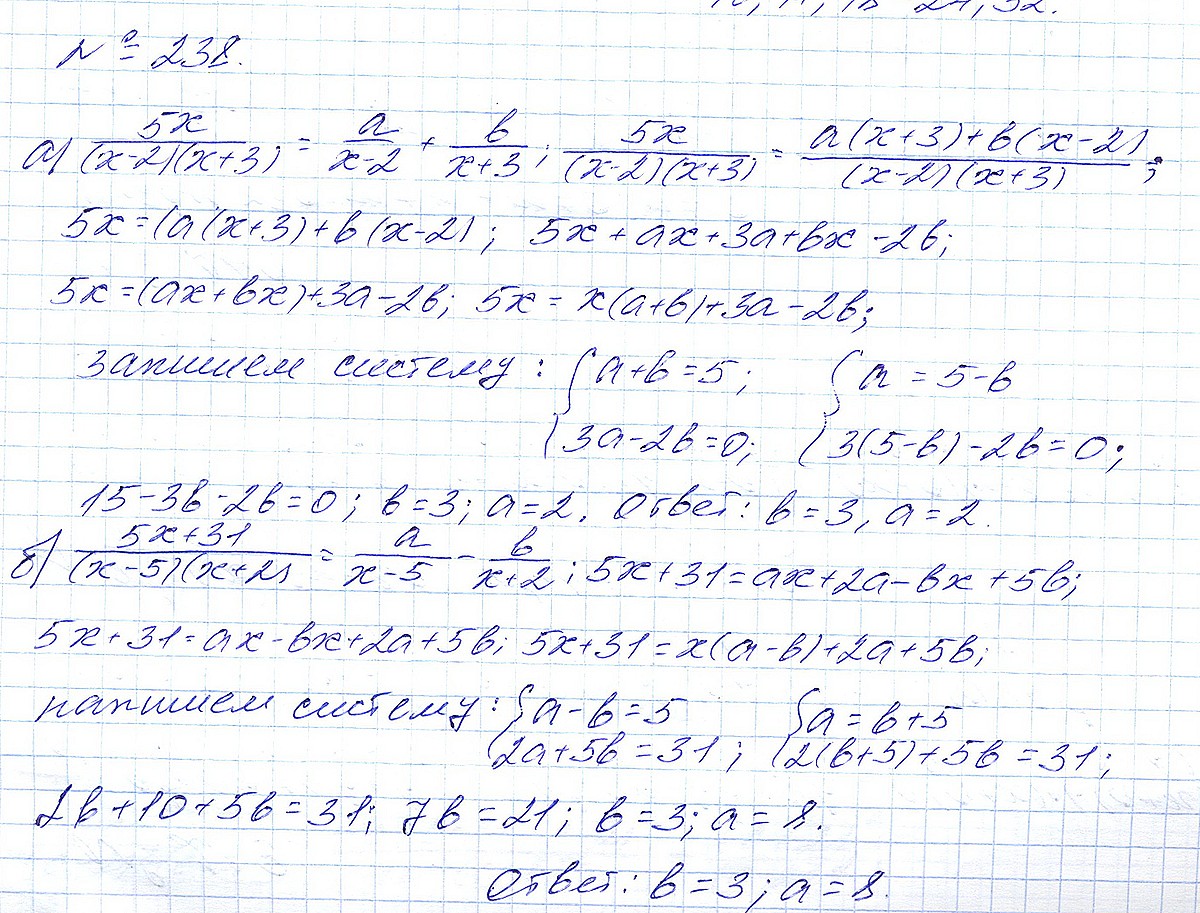 № 238.
а) 5x/((x-2)(x+3)) = a/(x-2) + b/(x+3); 5x/((x-2)(x+3)) = (a(x+3)+b(x-2))/((x-2)(x+3));
5x=(a(x+3)+b(x-2); 5x+ax+3a+bx-2b;
5x=(ax+bx)+3a-2b; 5x=x(a+b)+3a-2b;
запишем систему: { a+b=5; { a=5-b
3a-2b=0; 3(5-b)-2b=0;
15-3b-2b=0; b=3; a=2. Ответ: b=3, a=2.
б) (5x+31)/((x-5)(x+2)) = a/(x-5) - b/(x+2); 5x+31=ax+2a-bx+5b;
5x+31=ax-bx+2a+5b; 5x+31=x(a-b)+2a+5b;
напишем систему: { a-b=5 { a=b+5
2a+5b=31; 2(b+5)+5b=31;
2b+10+5b=31; 7b=21; b=3; a=8.
Ответ: b=3; a=8.